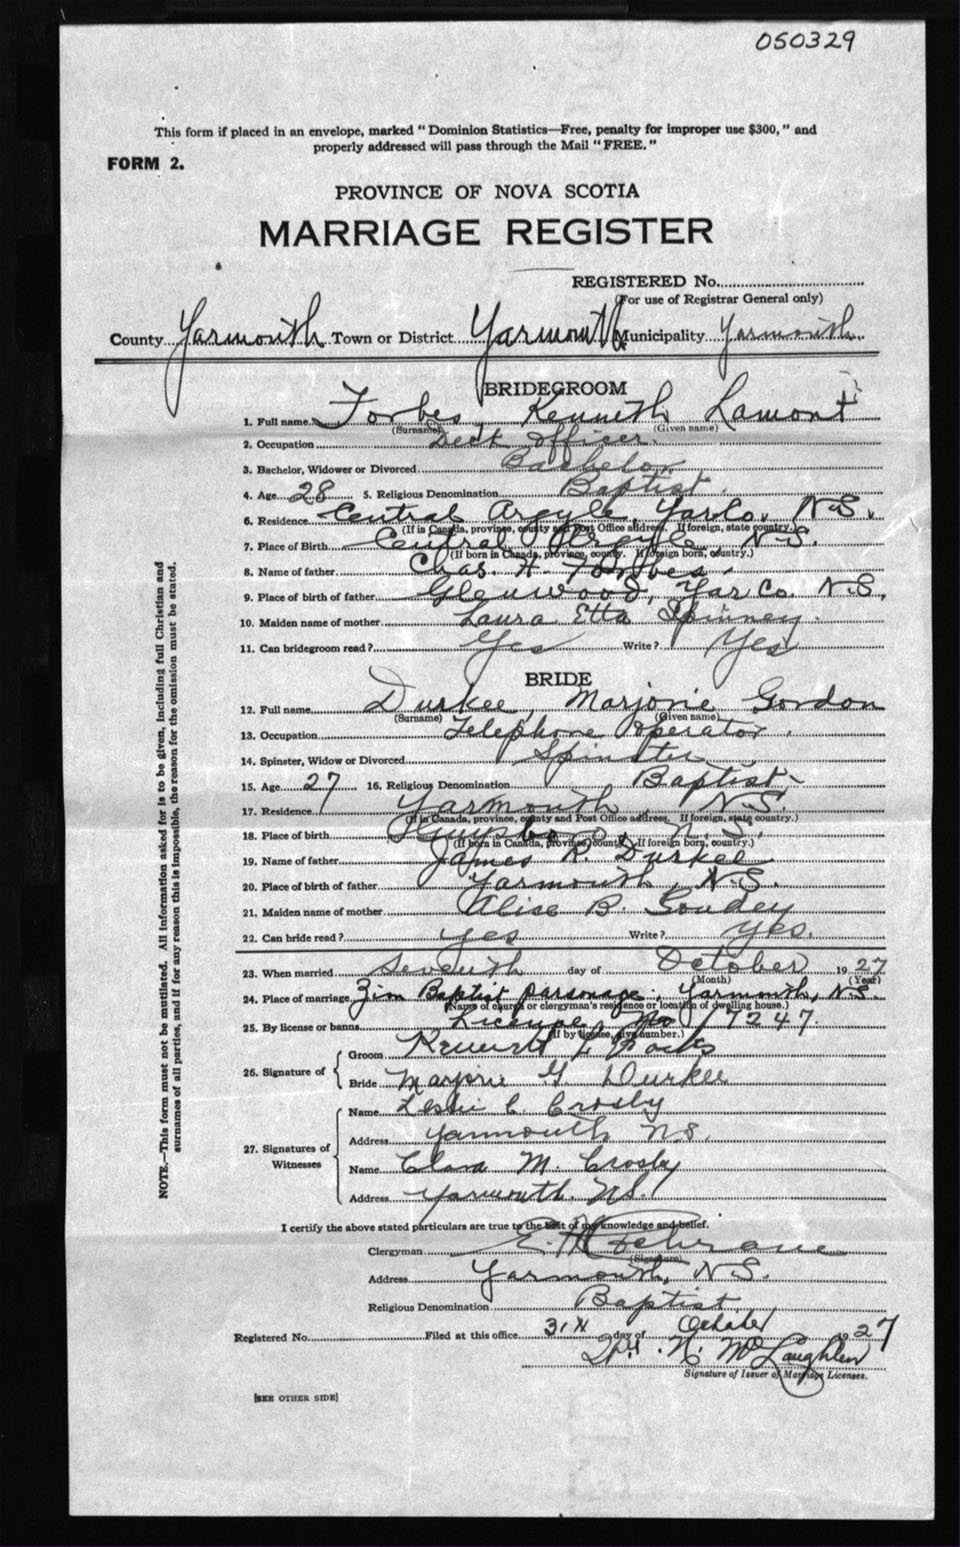 050329
This form if placed in an envelope, marked "Dominion Statistics—Free, penalty for improper use $300," and
properly addressed will pass through the Mail "FREE."
FORM 2.
PROVINCE OF NOVA SCOTIA
MARRIAGE REGISTER
REGISTERED No.
(For use of Registrar General only)
County Yarmouth Town or District Yarmouth Municipality Yarmouth
BRIDEGROOM
1. Full name Forbes Kenneth Lamont
(Surname) (Given name)
2. Occupation Deck Officer
3. Bachelor, Widower or Divorced Bachelor
4. Age 28 5. Religious Denomination Baptist
6. Residence Central Argyle, Yar Co. N.S.
(If in Canada, province, county and Post Office address. If foreign, state country.)
7. Place of Birth Central Argyle N.S.
(If born in Canada, province, county. If foreign born, country.)
8. Name of father Chas. H. Forbes.
9. Place of birth of father Glenwood, Yar Co. N.S.
10. Maiden name of mother Laura Etta Spinney.
11. Can bridegroom read? Yes Write? Yes
BRIDE
12. Full name Durkee, Marjorie Gordon
(Surname) (Given name)
13. Occupation Telephone Operator.
14. Spinster, Widow or Divorced Spinster
15. Age 27 16. Religious Denomination Baptist
17. Residence Yarmouth, N.S.
(If in Canada, province, county and Post Office address. If foreign, state country.)
18. Place of birth Guysboro, N.S.
(If born in Canada, province, county. If foreign born, country.)
19. Name of father James R. Durkee
20. Place of birth of father Yarmouth, N.S.
21. Maiden name of mother Alise B. Goudey
22. Can bride read? yes Write? yes.
23. When married Seventh day of October 1927
(Month) (Year)
24. Place of marriage Zion Baptist parsonage, Yarmouth, N.S.
(Name of church or clergyman's residence or location of dwelling house.)
25. By license or banns License No 7247.
(If by license, give number.)
26. Signature of
Groom Kenneth L Forbes
Bride Marjorie G Durkee
27. Signatures of
Witnesses
Name Leslie C. Crosby
Address Yarmouth N.S.
Name Clara M. Crosby
Address Yarmouth N.S.
I certify the above stated particulars are true to the best of my knowledge and belief.
Clergyman Cochrane
(Signature)
Address Yarmouth, N.S.
Religious Denomination Baptist
Registered No. Filed at this office 31st day of October 1927
N. McLaughlin
Signature of Issuer of Marriage Licenses.
[SEE OTHER SIDE]
NOTE.—This form must not be mutilated. All information asked for is to be given, including full Christian and
surnames of all parties, and if for any reason this is impossible, the reason for the omission must be stated.